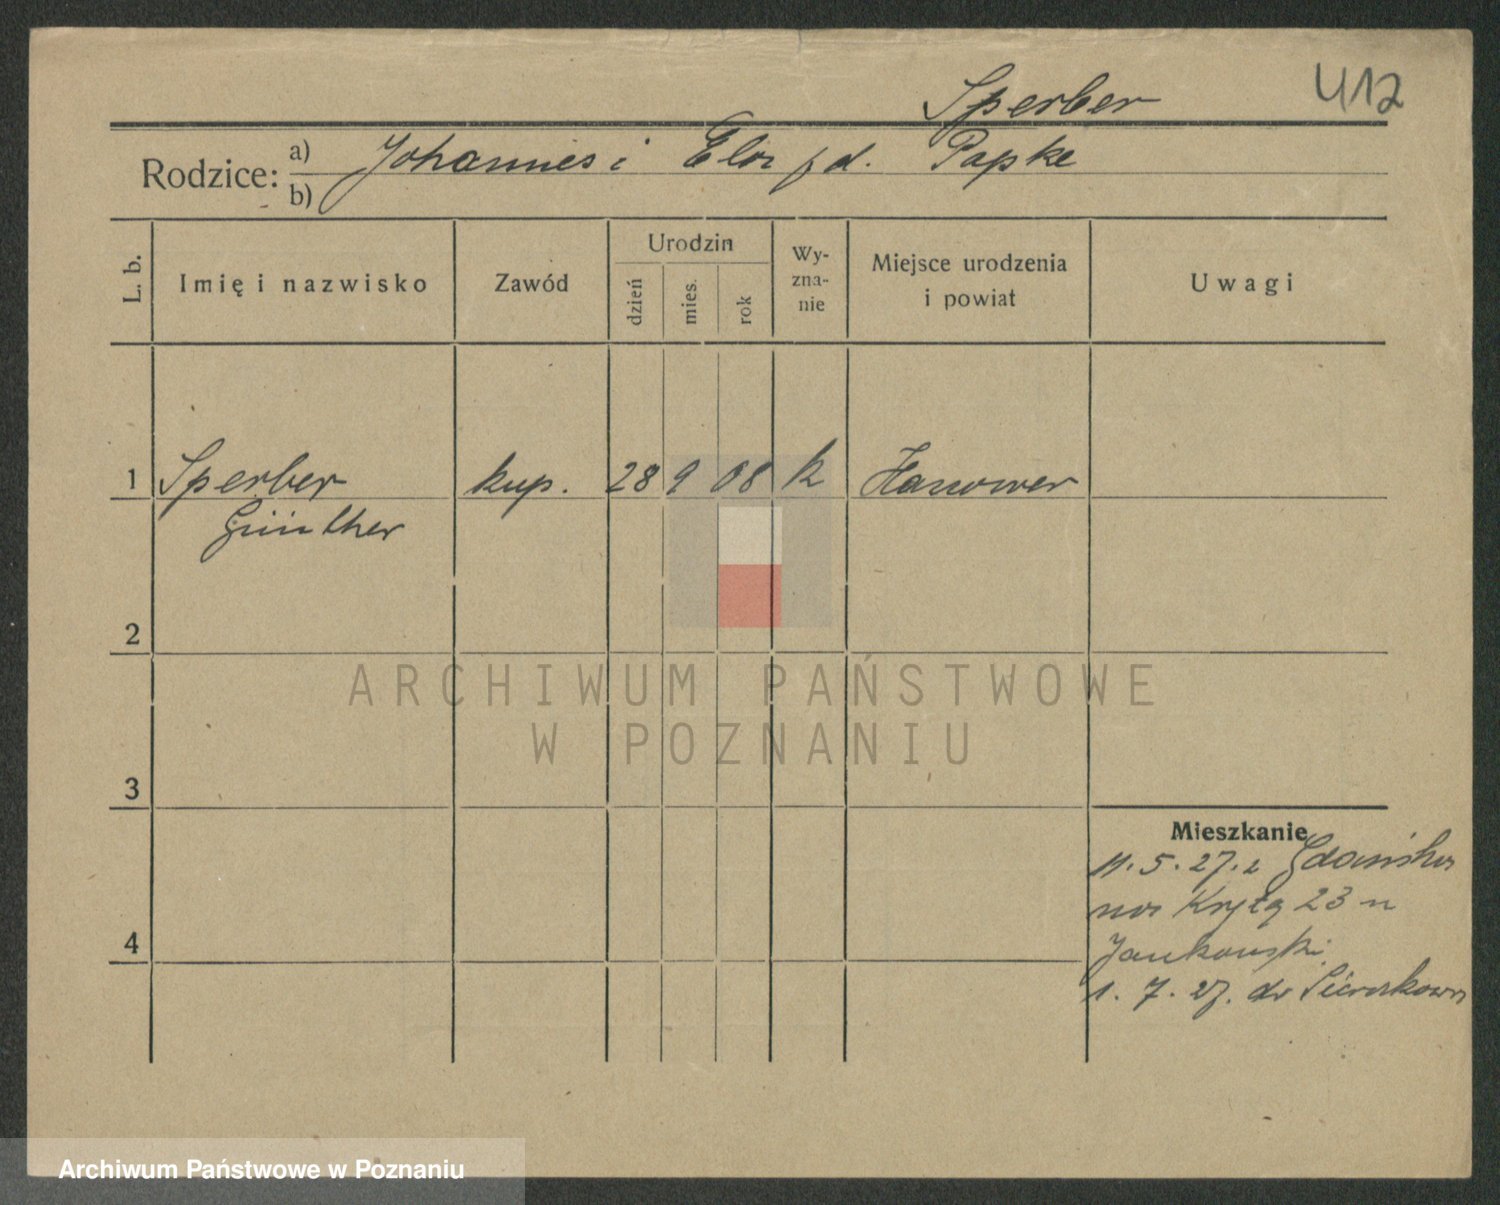 Sperber
412
Rodzice:
a) Johannes i Elza f d. Papke
b)
L. b.
Imię i nazwisko
Zawód
Urodzin
dzień
mies.
rok
Wy-
zna-
nie
Miejsce urodzenia
i powiat
Uwagi
1 Sperber kup. 28 9 08 k Hanower
Günther
2
3
4
Mieszkanie
11.5.27. z Gdańska
na Krytą 23 u
Jankowski
1.7.27. do Sierakowa
ARCHIWUM PAŃSTWOWE
W POZNANIU
Archiwum Państwowe w Poznaniu